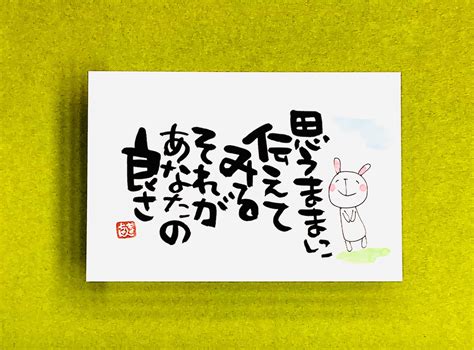 思うままに
伝えて
みる
それが
あなたの
良さ